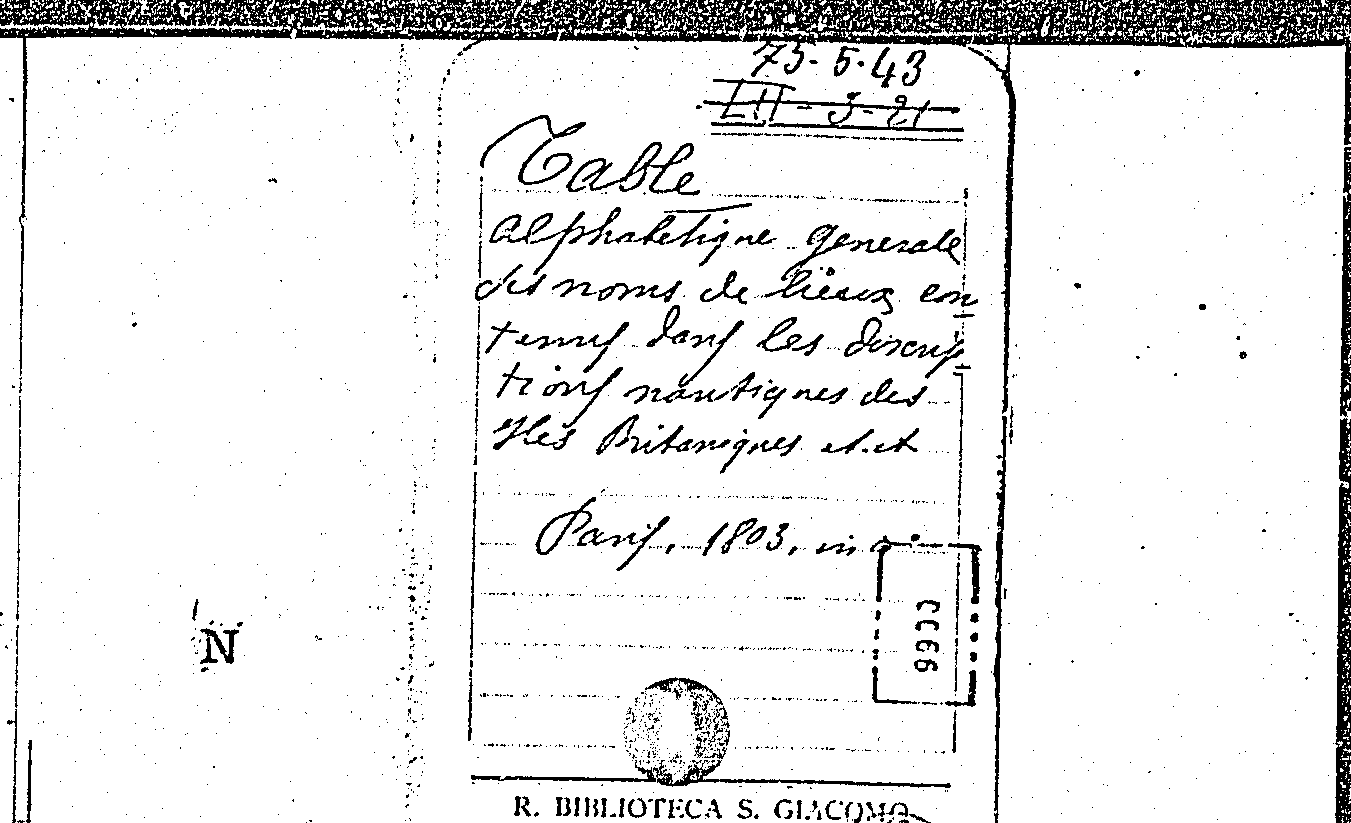 73-5-43
LII-3-21
Table
alphabetique generale
des noms de lieux con
tenus dans les descrip
tions nautiques des
Iles Britaniques et.et
Paris, 1803, in
N
R. BIBLIOTECA S. GIACOMO